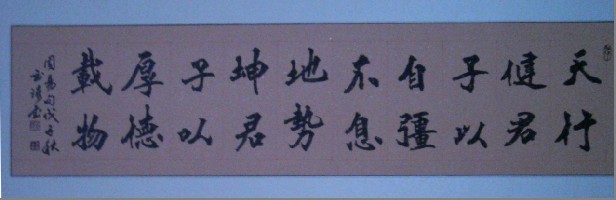 天行
健君
子以
自彊
不息
地勢
坤君
子以
厚德
載物
周易句戊子秋
書